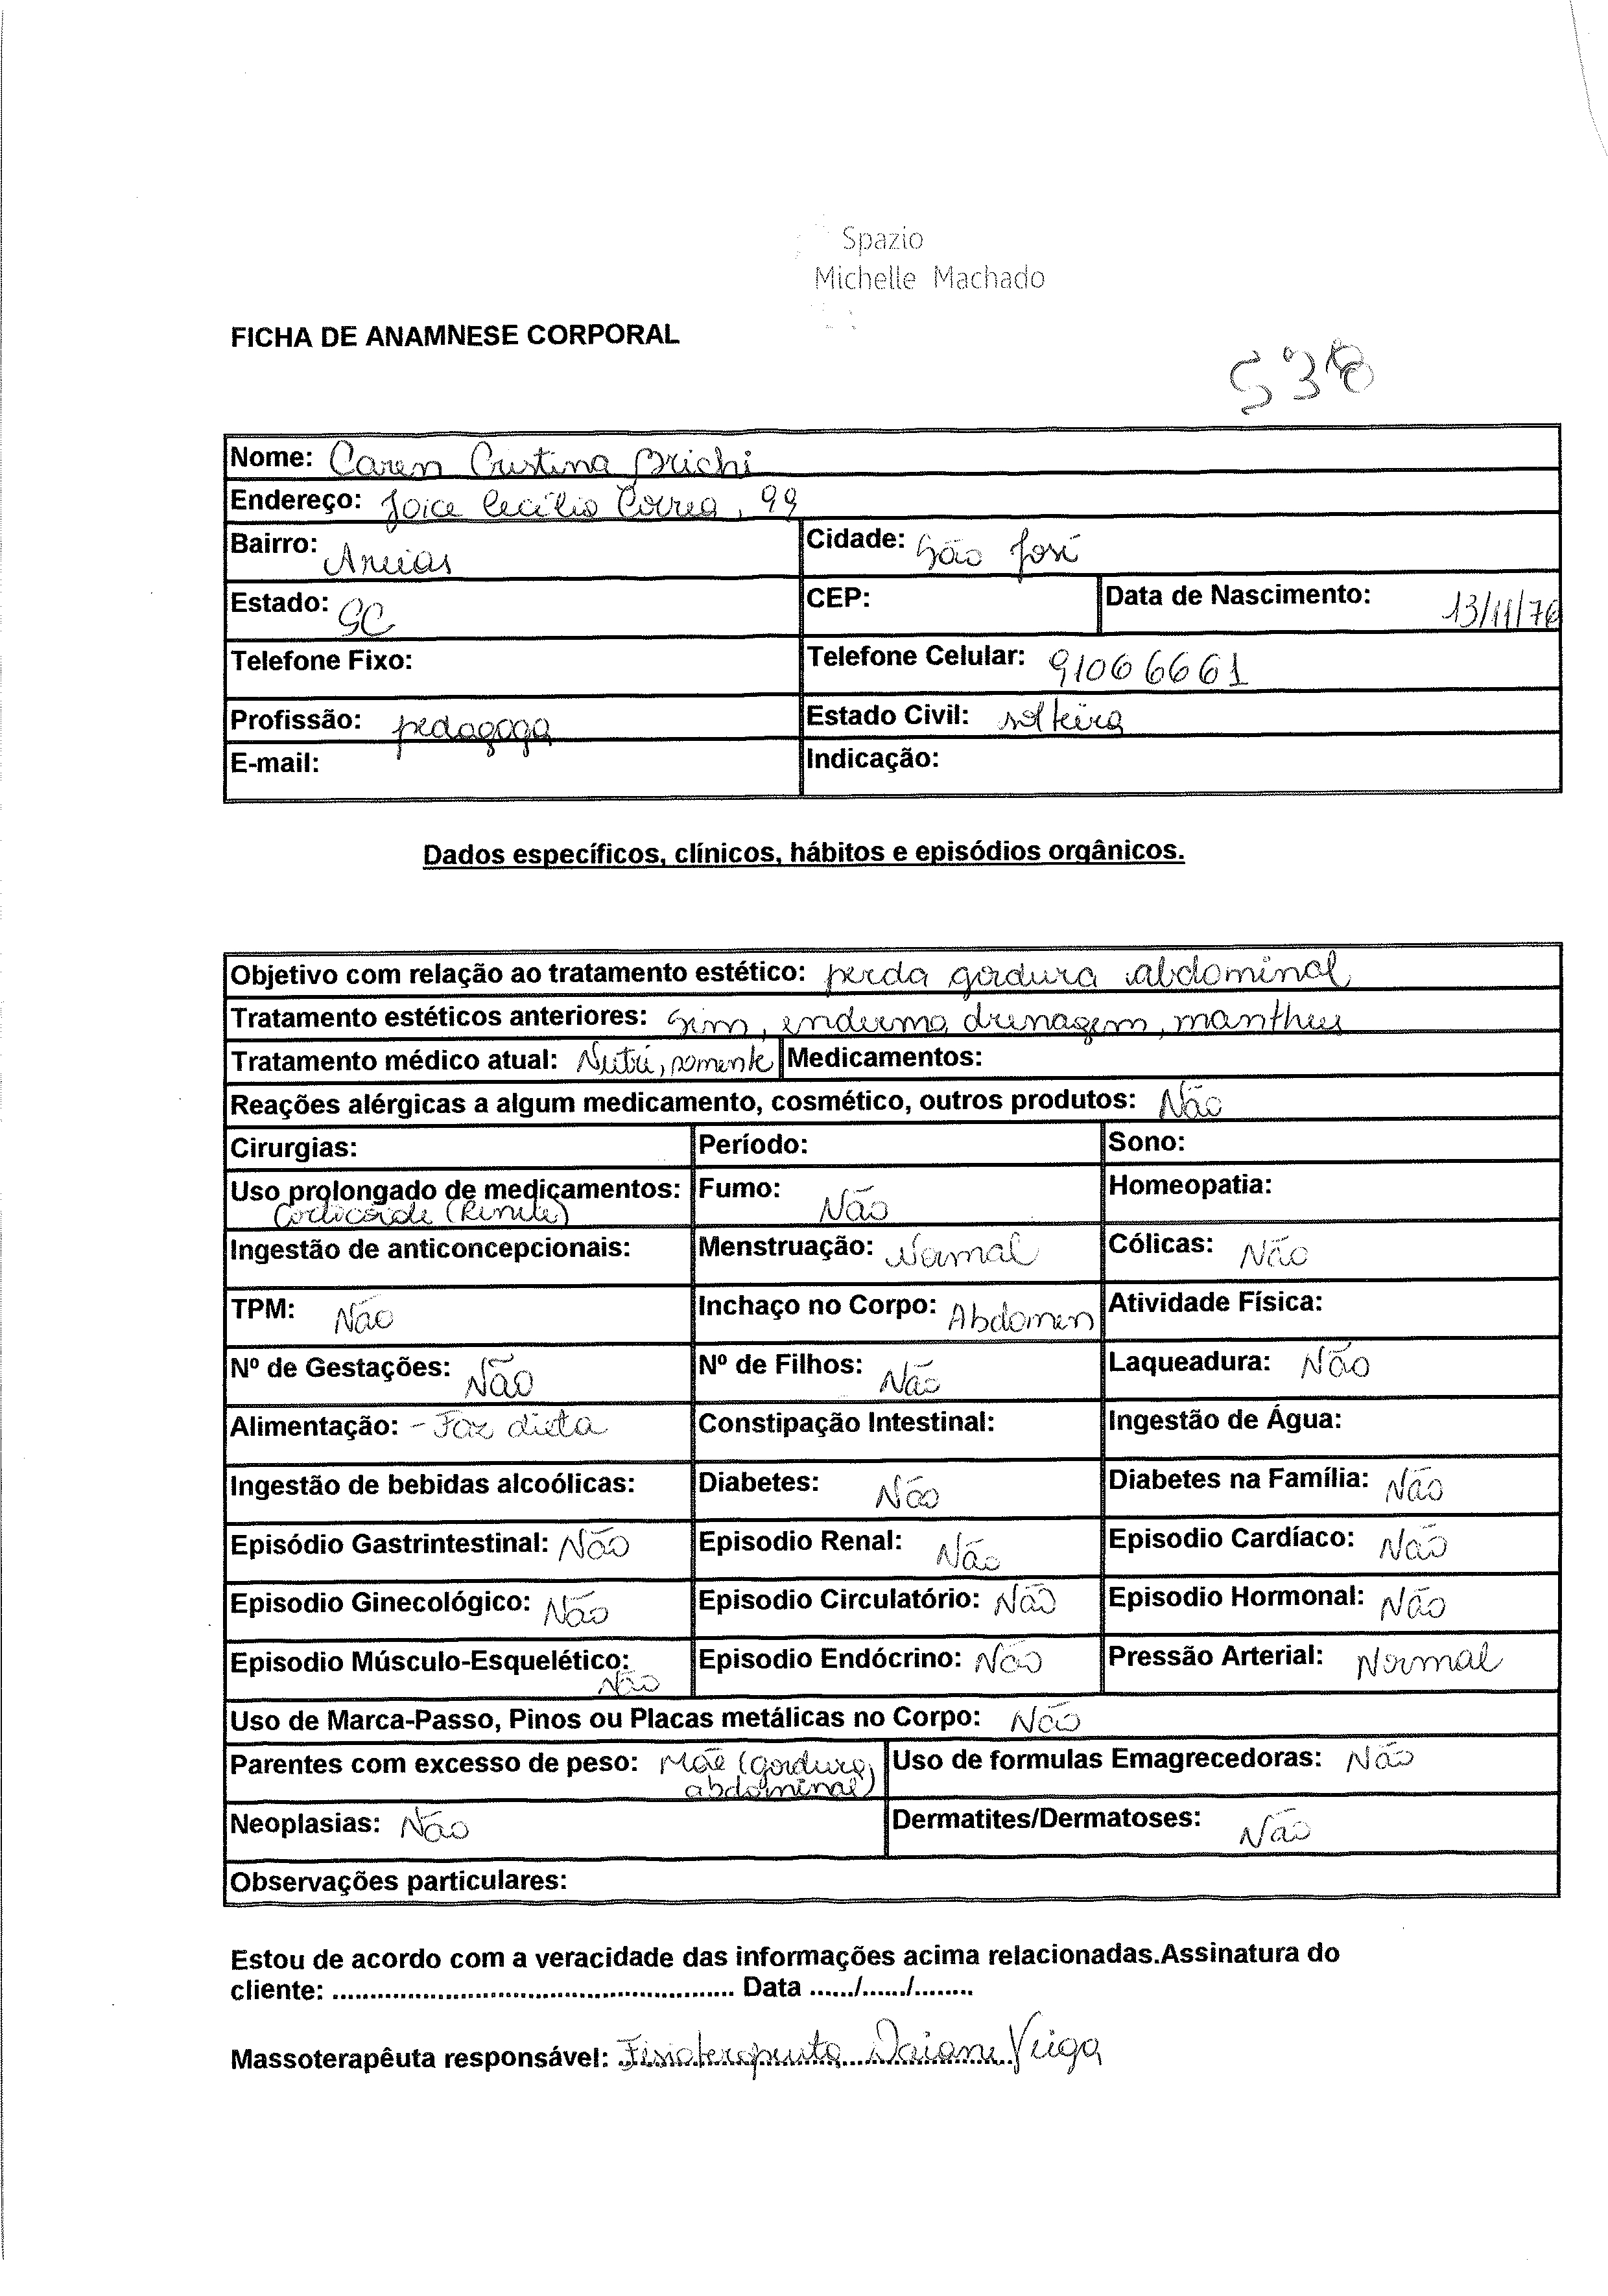 Spazio
Michelle Machado
FICHA DE ANAMNESE CORPORAL
538
Nome: Caren Cristina Brichi
Endereço: Joice Cecílio Correa, 99
Bairro: Areias Cidade: São José
Estado: SC CEP: Data de Nascimento: 13/11/76
Telefone Fixo: Telefone Celular: 91066661
Profissão: pedagoga Estado Civil: solteira
E-mail: Indicação:
Dados específicos, clínicos, hábitos e episódios orgânicos.
Objetivo com relação ao tratamento estético: perda gordura abdominal
Tratamento estéticos anteriores: Sim, endermo, drenagem, manthus
Tratamento médico atual: Nutri, somente Medicamentos:
Reações alérgicas a algum medicamento, cosmético, outros produtos: Não
Cirurgias: Período: Sono:
Uso prolongado de medicamentos: Fumo: Não Homeopatia:
Corticóide (Rinite)
Ingestão de anticoncepcionais: Menstruação: Normal Cólicas: Não
TPM: Não Inchaço no Corpo: Abdomen Atividade Física:
Nº de Gestações: Não Nº de Filhos: Não Laqueadura: Não
Alimentação: - Faz dieta Constipação Intestinal: Ingestão de Água:
Ingestão de bebidas alcoólicas: Diabetes: Não Diabetes na Família: Não
Episódio Gastrintestinal: Não Episodio Renal: Não Episodio Cardíaco: Não
Episodio Ginecológico: Não Episodio Circulatório: Não Episodio Hormonal: Não
Episodio Músculo-Esquelético: Não Episodio Endócrino: Não Pressão Arterial: Normal
Uso de Marca-Passo, Pinos ou Placas metálicas no Corpo: Não
Parentes com excesso de peso: Mãe (gordura Uso de formulas Emagrecedoras: Não
abdominal)
Neoplasias: Não Dermatites/Dermatoses: Não
Observações particulares:
Estou de acordo com a veracidade das informações acima relacionadas.Assinatura do
cliente: ..................................................... Data ....../....../........
Massoterapêuta responsável: Fisioterapeuta Daiane Veiga